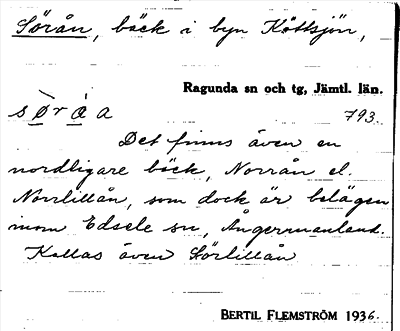 Sörån, bäck i byn Köttsjön,
Ragunda sn och tg, Jämtl. län.
s ø̀ r œ́ a 793.
Det finns även en
nordligare bäck, Norrån el.
Norrlillån, som dock är belägen
inom Edsele sn, Ångermanland.
Kallas även Sörlillån
BERTIL FLEMSTRÖM 1936.